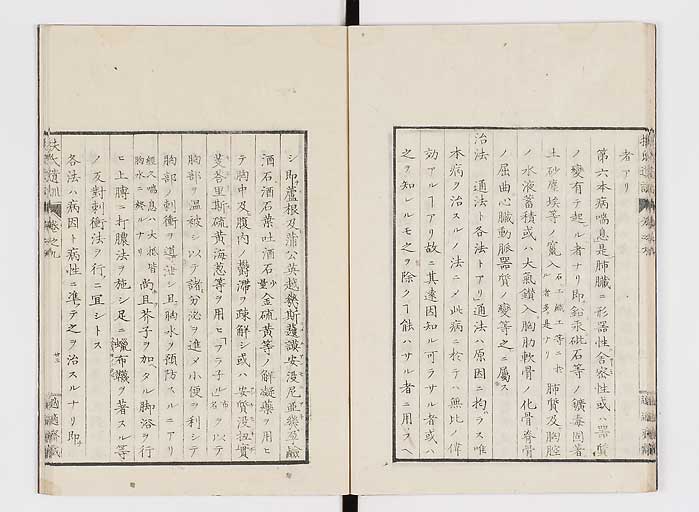 者アリ
第六本病喘息是肺臓ニ形器性舎密性或ハ器質
ノ變有テ起ル者ナリ即鉛汞砒石等ノ鑛毒固著
土砂塵埃等ノ竄入石工織工等ニ於ル者多是ナリ肺質及胸腔
ノ水液蓄積或ハ大氣鑚入胸肋軟骨ノ化骨脊骨
ノ屈曲心臓動脈器質ノ變等之ニ屬ス
治法 通法ト各法トアリ通法ハ原因ニ拘ラス唯
本病ヲ治スルノ法ニメ此病ニ於テハ無比ノ偉
効アルヿアリ故ニ其遠因知ル可ラサル者或ハ
之ヲ知レルモ之ヲ除クヿ能ハサル者ニ用ウヘ
シ即蘆根及蒲公英越幾斯
酒石酒石葉吐酒石少量金硫黄等ノ解凝藥ヲ用ヒ
テ胸中及腹内ノ欝滯ヲ疎解シ或ハ安質没扭實
菱答里斯硫黄海葱等ヲ用ヒフラ子ル布名ヲ以テ
胸部ヲ温被シ以テ諸分泌ヲ進メ小便ヲ利シテ
胸部ノ刺衝ヲ導泄シ且胸水ヲ預防スルニアリ
經久喘息ハ大抵皆胸水ニ終ルナリ尚且芥子ヲ加タル脚浴ヲ行
ヒ上膊ニ打膿法ヲ施シ足ニ蠟布韈ヲ著スル等
ノ反對刺衝法ヲ行ニ宜シトス
各法ハ病因ト病性ニ準テ之ヲ治スルナリ即
扶氏遺訓 卷之九
廿三
適適齋藏